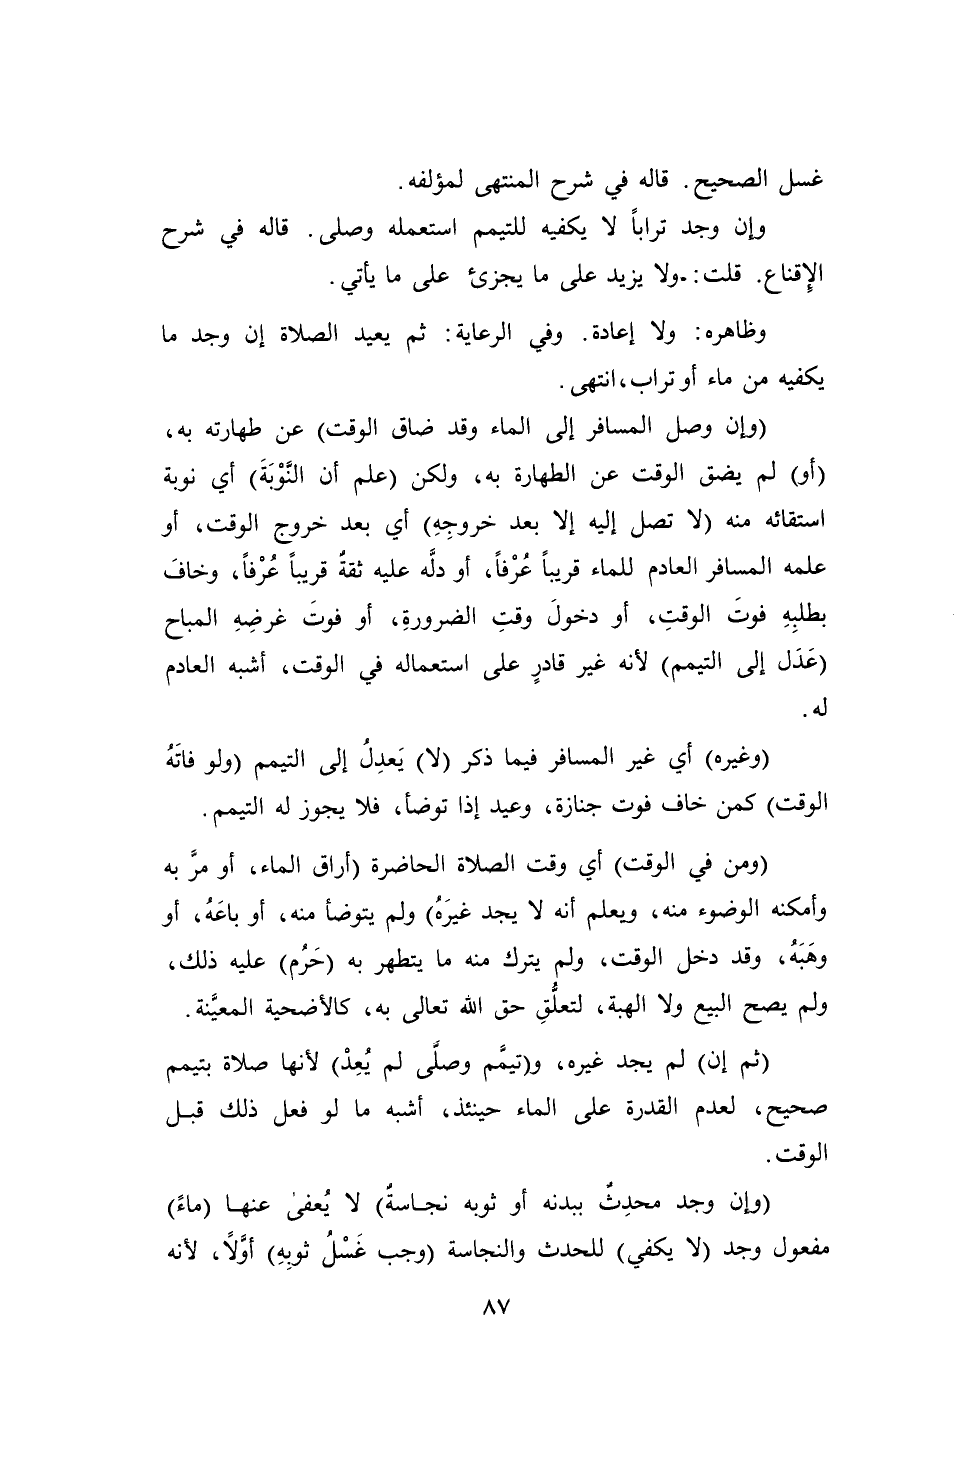 غسل الصحيح. قاله في شرح المنتهى لمؤلفه.
وإن وجد تراباً لا يكفيه للتيمم استعمله وصلى. قاله في شرح
الإِقناع. قلت: ـولا يزيد على ما يجزئ على ما يأتي.
وظاهره: ولا إعادة. وفي الرعاية: ثم يعيد الصلاة إن وجد ما
يكفيه من ماء أو تراب، انتهى.
(وإن وصل المسافر إلى الماء وقد ضاق الوقت) عن طهارته به،
(أو) لم يضق الوقت عن الطهارة به، ولكن (علم أن النَّوْبَةَ) أي نوبة
استقائه منه (لا تصل إليه إلا بعد خروجِهِ) أي بعد خروج الوقت، أو
علمه المسافر العادم للماء قريباً عُرْفاً، أو دلَّه عليه ثقةٌ قريباً عُرْفاً، وخافَ
بطلبِهِ فوتَ الوقتِ، أو دخولَ وقتِ الضرورةِ، أو فوتَ غرضِهِ المباح
(عَدَل إلى التيمم) لأنه غير قادرٍ على استعماله في الوقت، أشبه العادم
له.
(وغيره) أي غير المسافر فيما ذكر (لا) يَعدِلُ إلى التيمم (ولو فاتَهُ
الوقت) كمن خاف فوت جنازة، وعيد إذا توضأ، فلا يجوز له التيمم.
(ومن في الوقت) أي وقت الصلاة الحاضرة (أراق الماء، أو مرَّ به
وأمكنه الوضوء منه، ويعلم أنه لا يجد غيرَهُ) ولم يتوضأ منه، أو باعَهُ، أو
وهَبَهُ، وقد دخل الوقت، ولم يترك منه ما يتطهر به (حَرُم) عليه ذلك،
ولم يصح البيع ولا الهبة، لتعلُّقِ حق الله تعالى به، كالأضحية المعيَّنة.
(ثم إن) لم يجد غيره، و(تيمَّم وصلَّى لم يُعِدْ) لأنها صلاة بتيمم
صحيح، لعدم القدرة على الماء حينئذ، أشبه ما لو فعل ذلك قبل
الوقت.
(وإن وجد محدِثٌ ببدنه أو ثوبه نجاسةٌ) لا يُعفىٰ عنها (ماءً)
مفعول وجد (لا يكفي) للحدث والنجاسة (وجب غَسْلُ ثوبِهِ) أوَّلاً، لأنه
٨٧